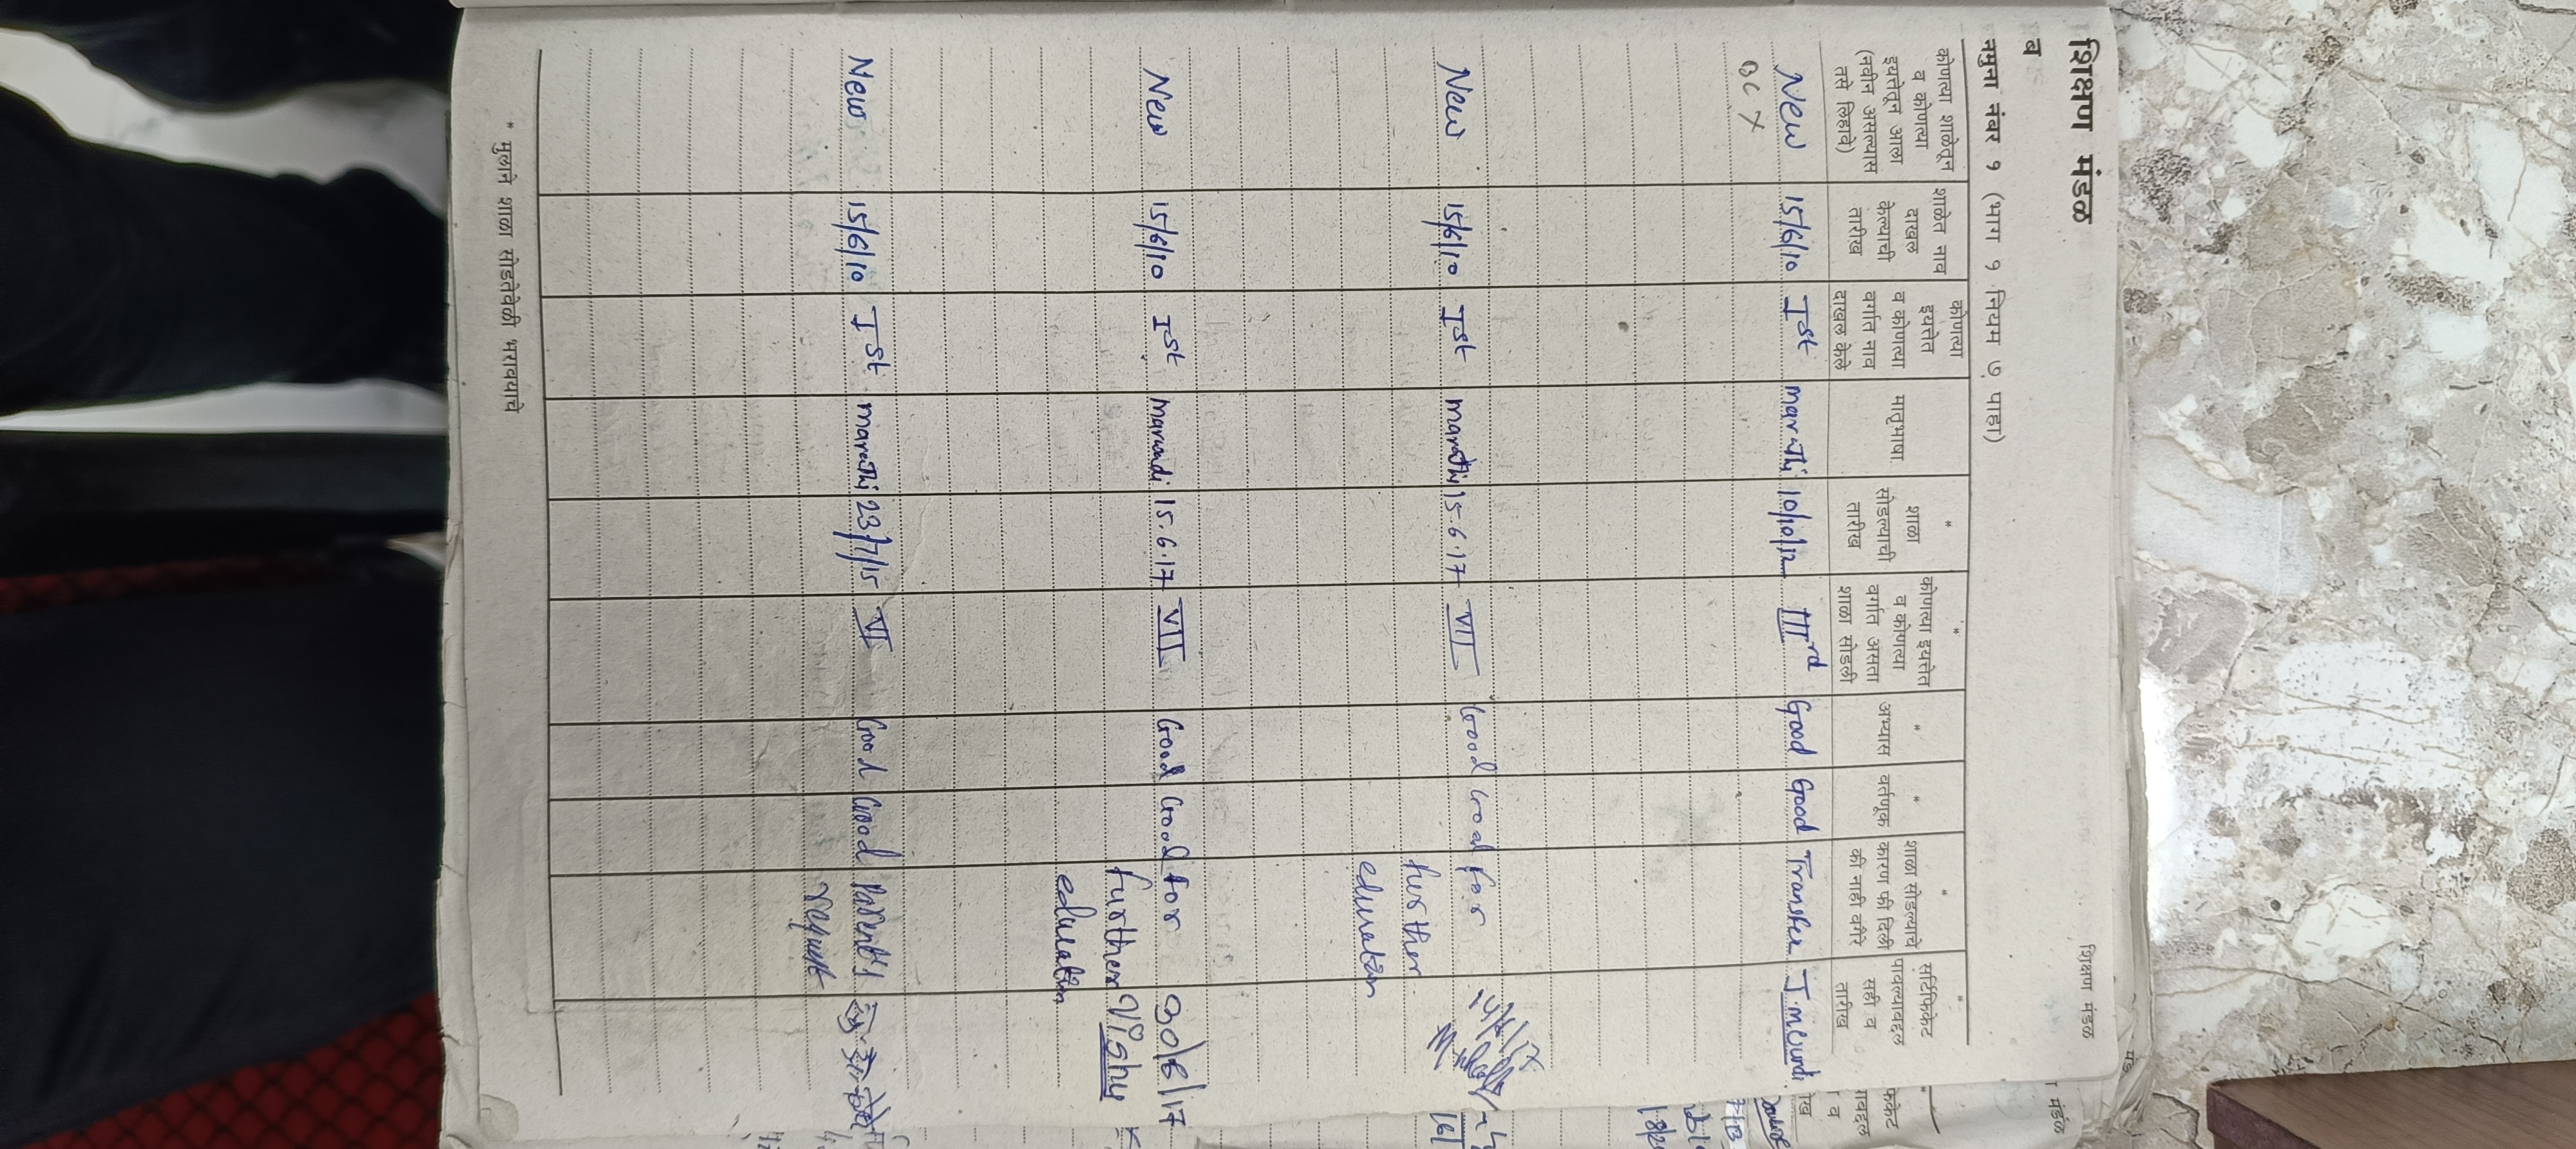 शिक्षण मंडळ
शिक्षण मंडळ
व
नमुना नंबर १ (भाग १ नियम ७ पाहा)
कोणत्या शाळेतून व कोणत्या इयत्तेतून आला (नवीन असल्यास तसे लिहावे)
शाळेत नाव दाखल केल्याची तारीख
कोणत्या इयत्तेत व कोणत्या वर्गात नाव दाखल केले
मातृभाषा
* शाळा सोडल्याची तारीख
* कोणत्या इयत्तेत व कोणत्या वर्गात असता शाळा सोडली
* अभ्यास
* वर्तणूक
* शाळा सोडल्याचे कारण फी दिली की नाही वगैरे
* सर्टिफिकेट पावल्याबद्दल सही व तारीख
New 15/6/10 Ist marathi 10/10/12 IIIrd Good Good Transfer
BC X
New 15/6/10 Ist marathi 15.6.17 VII Good Good for
further
education
New 15/6/10 Ist marwadi 15.6.17 VII Good Good for 30/6/17
further Vishy
education
New 15/6/10 Ist marathi 23/7/15 VI Good Good parent's
request
* मुलाने शाळा सोडतेवेळी भरावयाचे